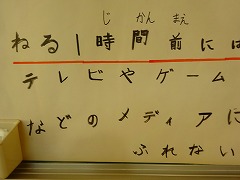 じ かん まえ
ねる1時間前には
テレビやゲーム
などのメディアに
ふれない